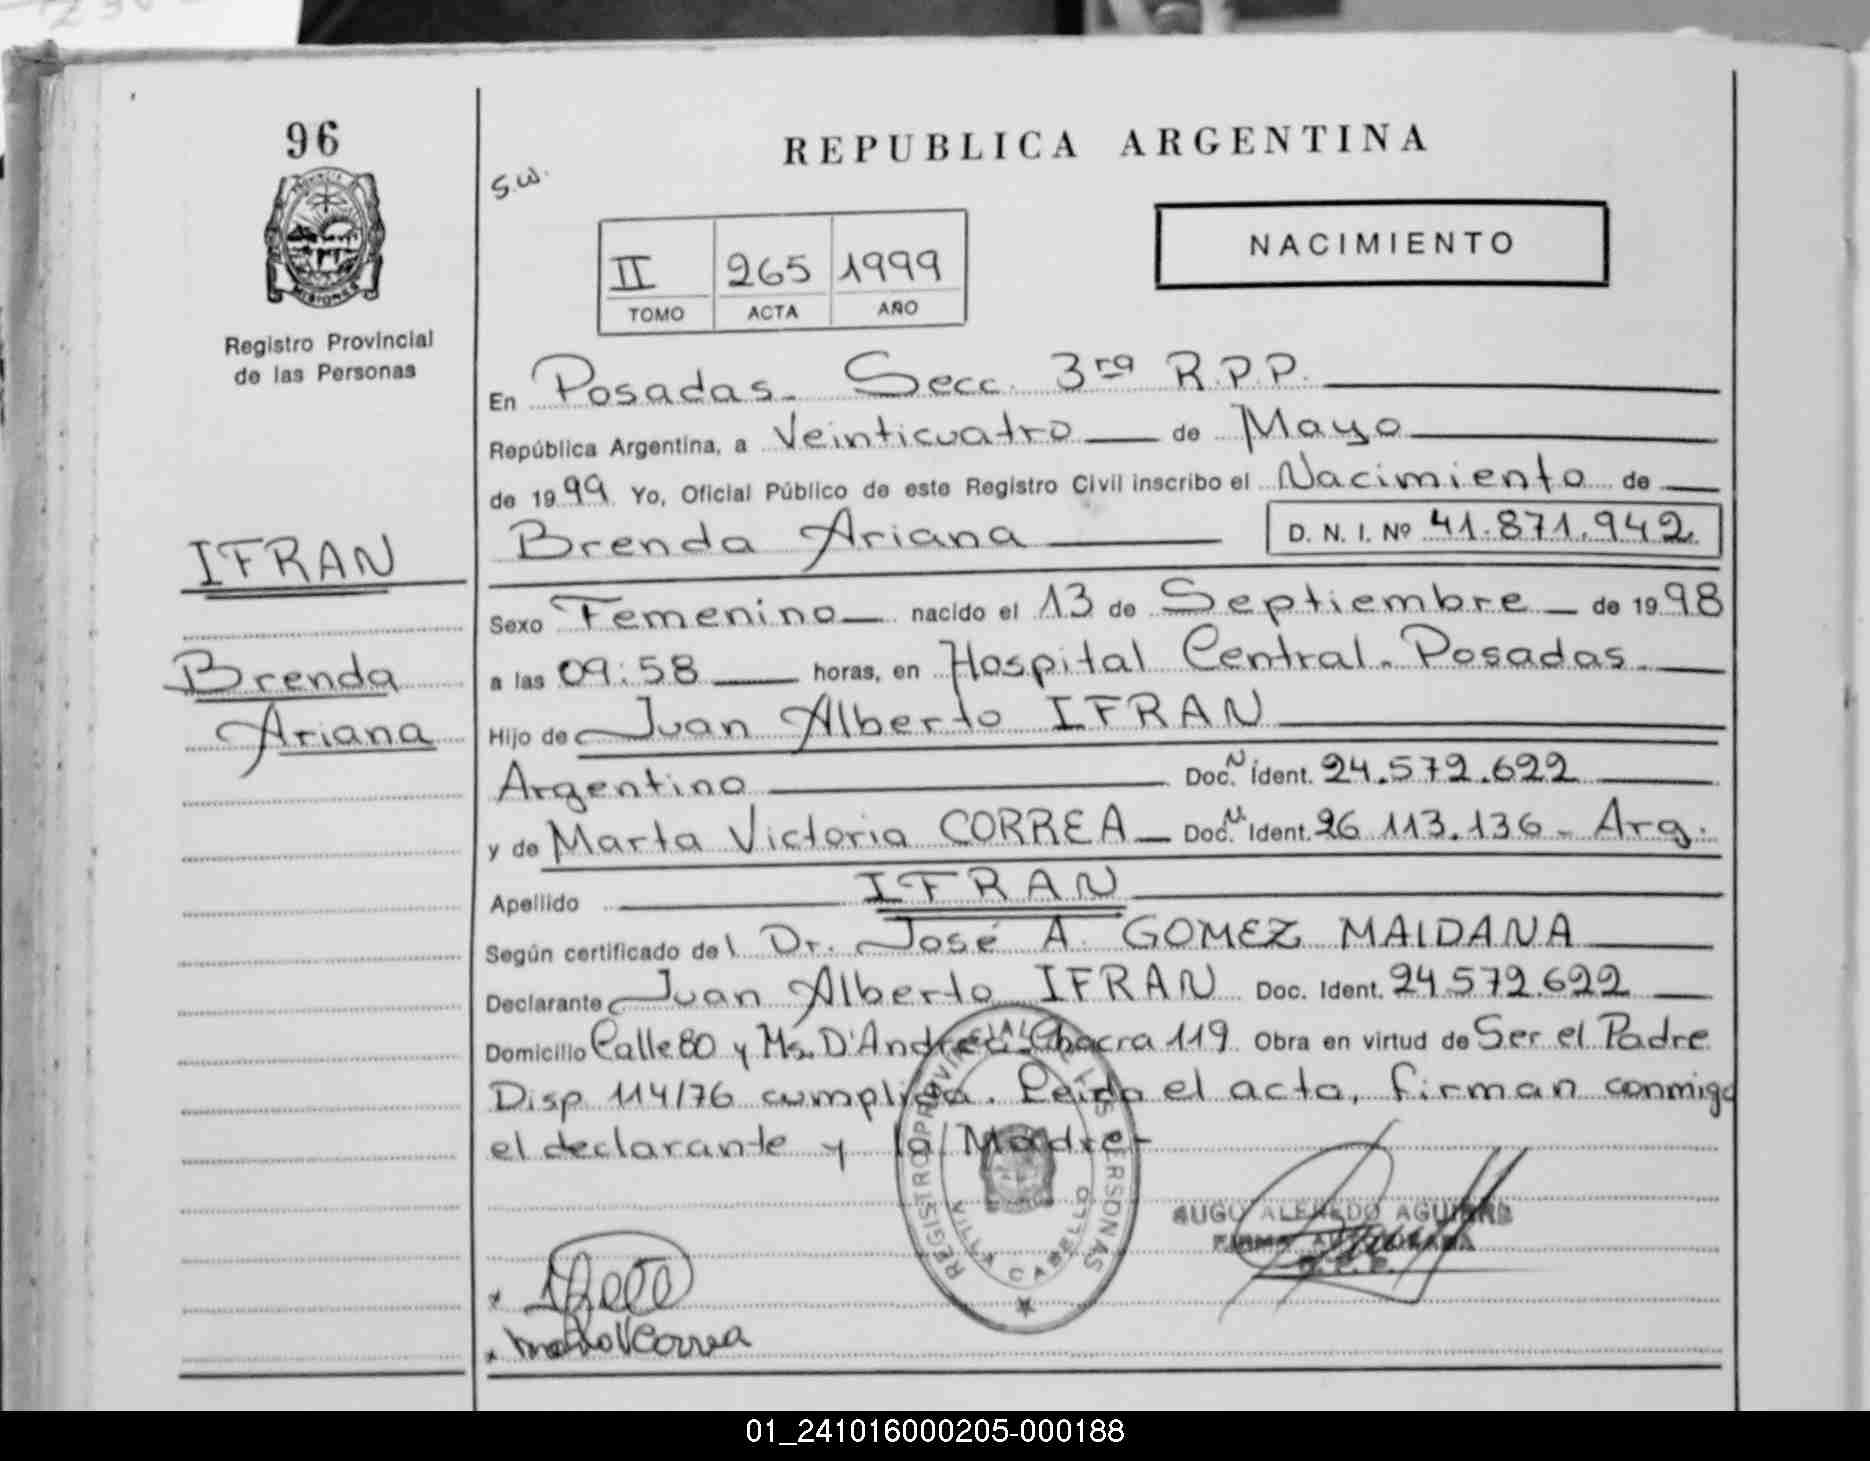 96
PROVINCIA
MISIONES
Registro Provincial
de las Personas
IFRAN
Brenda
Ariana
REPUBLICA ARGENTINA
S.W.
NACIMIENTO
II 265 1999
TOMO ACTA AÑO
En Posadas. Secc. 3ra R.P.P.
República Argentina, a Veinticuatro de Mayo
de 1999 Yo, Oficial Público de este Registro Civil inscribo el Nacimiento de
Brenda Ariana D. N. I. Nº 41.871.942
Sexo Femenino nacido el 13 de Septiembre de 1998
a las 09:58 horas, en Hospital Central. Posadas
Hijo de Juan Alberto IFRAN
Argentino Doc. N Ident. 24.572.622
y de Marta Victoria CORREA Doc. N Ident. 26 113.136 - Arg.
Apellido IFRAN
Según certificado del Dr. José A. GOMEZ MALDANA
Declarante Juan Alberto IFRAN Doc. Ident. 24572.622
Domicilio Calle 80 y Ms. D'Andrea Chacra 119 Obra en virtud de Ser el Padre
Disp 114/76 cumplida. Leida el acta, firman conmigo
el declarante y la Madre-
REGISTRO PROVINCIAL DE LAS PERSONAS
VILLA CABELLO
HUGO ALFREDO AGUIRRE
FIRMA AUTORIZADA
R.P.P.
Correa
01_241016000205-000188